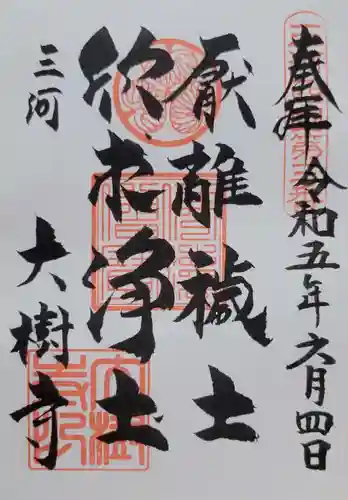 奉拝 令和五年六月四日
厭離穢土
欣求浄土
三河
大樹寺